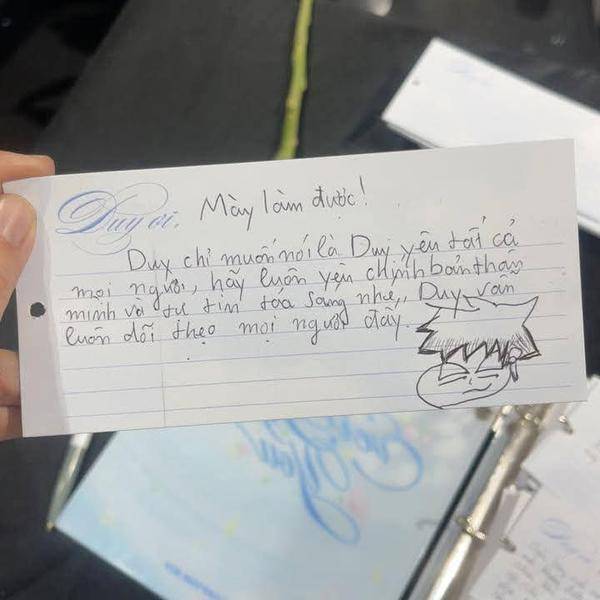 Duy ơi, Mày làm được!
Duy chỉ muốn nói là Duy yêu tất cả
mọi người, hãy luôn yêu chính bản thân
mình và tự tin tỏa sáng nhé, Duy vẫn
luôn dõi theo mọi người đấy.